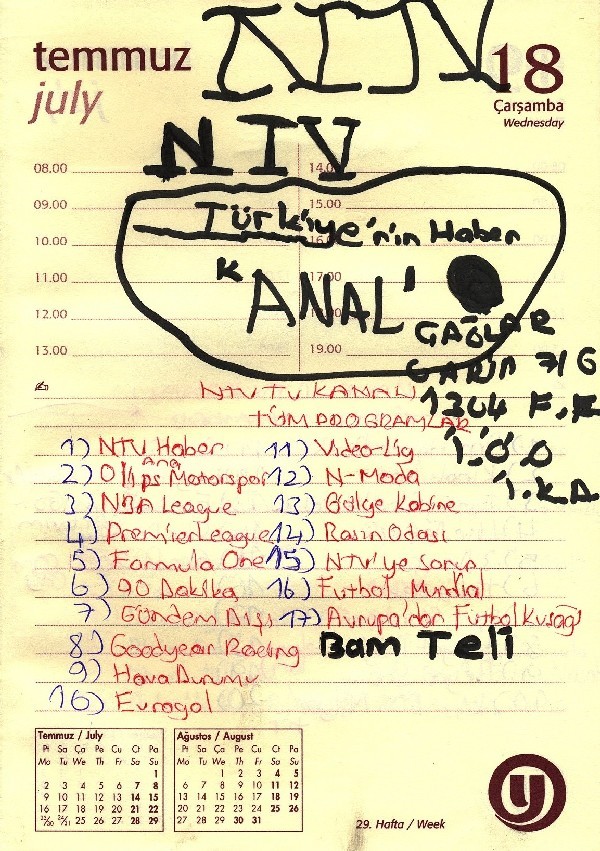 temmuz
july
NTV
18
Çarşamba
Wednesday
NTV
08.00
14.0
09.00
15.00
Türkiye'nin Haber
10.00
16.00
"KANAL'
11.00
17.00
12.00
ÇAĞLAR
13.00
19.00
7/G
1304
NTV TV KANALI
TÜM PROGRAMLAR
İ.Ö.O
İ.K.A
1) NTV Haber
11) Video-Lig
2) Olips Motorspor
Ana
12) N-Moda
3) NBA League
13) Gölge Kabine
4) Premier League
14) Basın Odası
5) Formula One
15) NTV'ye Sorun
6) 90 Dakika
16) Futbol Mundial
7) Gündem Dışı
17) Avrupa'dan Futbol Kuşağı
8) Goodyear Raeing
Bam Teli
9) Hava Durumu
10) Eurogol
Temmuz / July
Pt Sa Ça Pe Cu Ct Pa
Mo Tu We Th Fr Sa Su
1
2 3 4 5 6 7 8
9 10 11 12 13 14 15
16 17 18 19 20 21 22
23/30 24/31 25 26 27 28 29
Ağustos / August
Pt Sa Ça Pe Cu Ct Pa
Mo Tu We Th Fr Sa Su
1 2 3 4 5
6 7 8 9 10 11 12
13 14 15 16 17 18 19
20 21 22 23 24 25 26
27 28 29 30 31
29. Hafta / Week